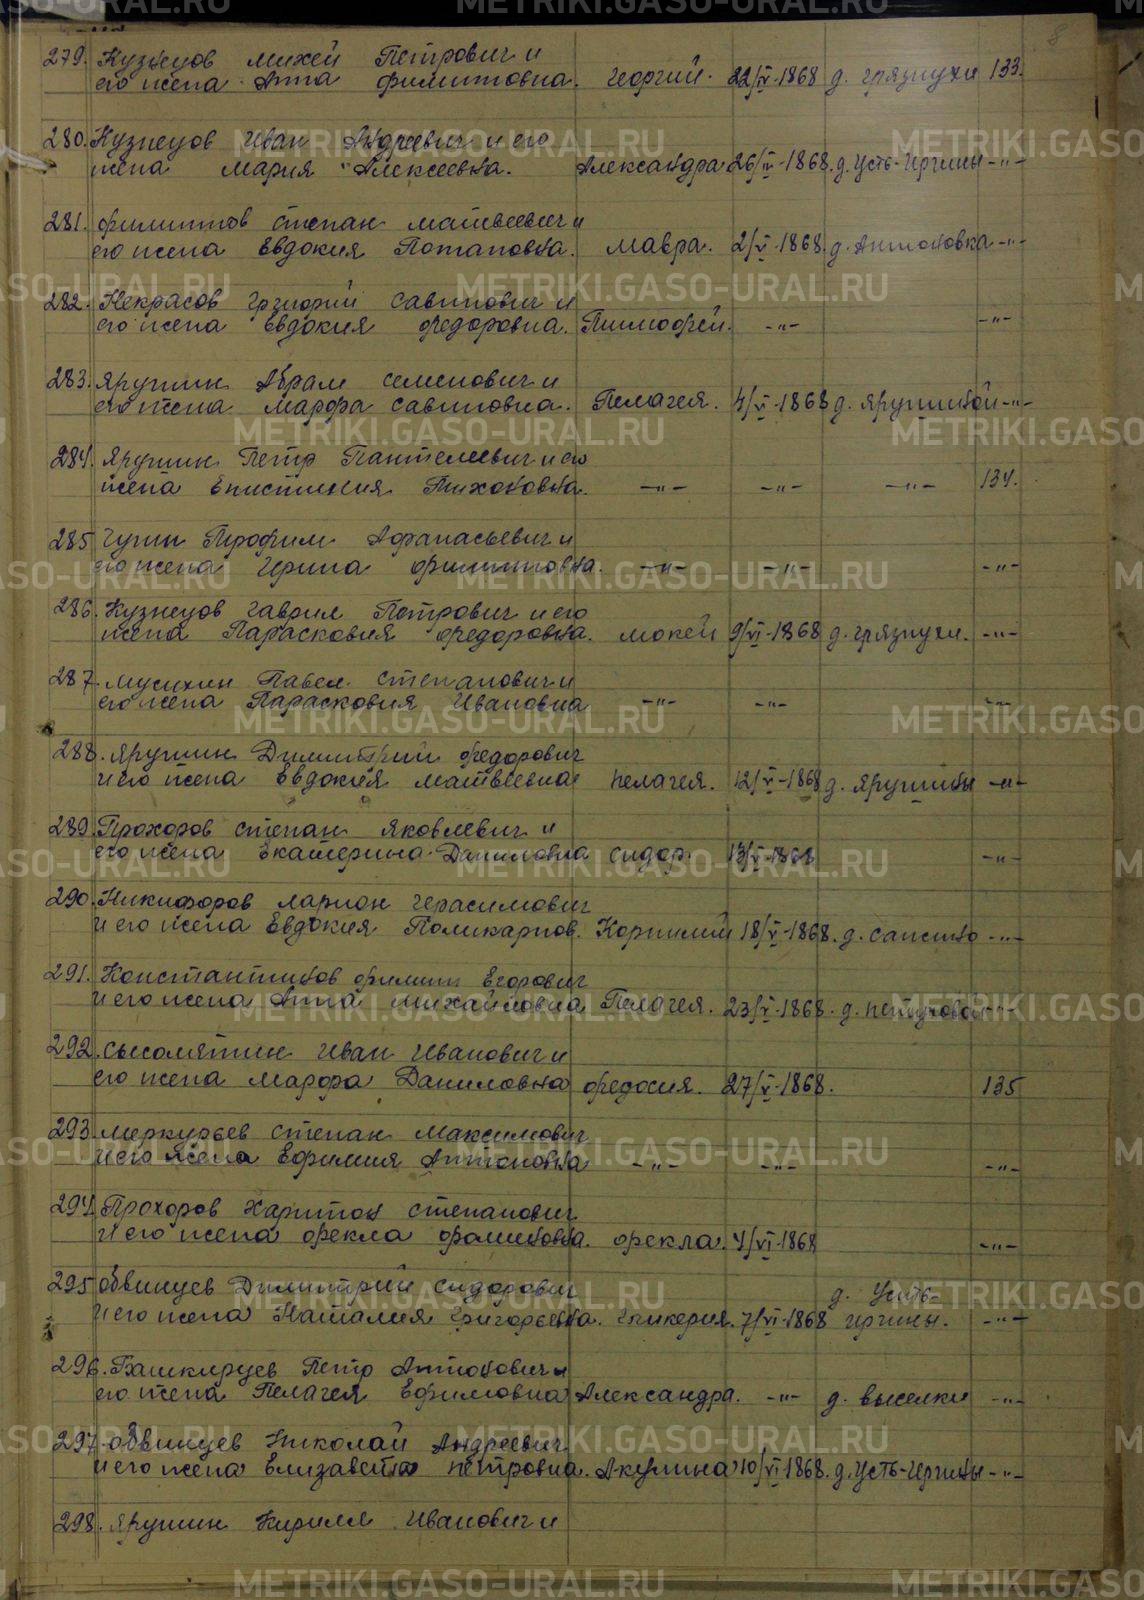 8
279. Кузнецов Михей Петрович и
его жена Анна Филипповна. Георгий. 22/IV-1868 д. Грязнухи 133.
280. Кузнецов Иван Андреевич и его
жена Мария Алексеевна. Александра 26/IV-1868. д. Усть-Иргины -"-
281. Филиппов Степан Матвеевич и
его жена Евдокия Потаповна. Мавра. 2/V-1868. д. Антоновка -"-
282. Некрасов Григорий Савинович и
его жена Евдокия Федоровна. Тимофей. -"- -"-
283. Ярушин Абрам Семенович и
его жена Марфа Савиновна. Пелагея. 4/V-1868 д. Ярушиной -"-
284. Ярушин Петр Пантелеевич и его
жена Епистиния Тихоновна. -"- -"- -"- 134.
285 Чугин Трофим Афанасьевич и
его жена Ирина Филипповна. -"- -"- -"-
286. Кузнецов Гаврил Петрович и его
жена Парасковия Федоровна. Мокей 9/VI-1868 д. Грязнухи. -"-
287. Мусихин Павел Степанович и
его жена Парасковия Ивановна -"- -"- -"-
288. Ярушин Димитрий Федорович
и его жена Евдокия Матвеевна Пелагея. 12/V-1868 д. Ярушины -"-
289. Прохоров Степан Яковлевич и
его жена Екатерина Даниловна Сидор. 13/V-1868 -"-
290. Никифоров Ларион Герасимович
и его жена Евдокия Поликарпов. Корнилий 18/V-1868. д. Сансино -"-
291. Константинов Филипп Егорович
и его жена Анна Михайловна Пелагея. 23/V-1868. д. Петуховой -"-
292. Сысолятин Иван Иванович и
его жена Марфа Даниловна Федосия. 27/V-1868. 135
293. Меркурьев Степан Максимович
и его жена Ефимия Антоновна -"- -"- -"-
294. Прохоров Харитон Степанович
и его жена Фекла Фоминовна. Фекла. 4/VI-1868 -"-
295 Обвинцев Димитрий Сидорович д. Усть-
и его жена Наталия Григорьевна. Гликерия. 7/VI-1868 Иргины. -"-
296. Башкирцев Петр Антонович и
его жена Пелагея Ефимовна Александра. -"- д. Выселки -"-
297. Обвинцев Николай Андреевич
и его жена Елизавета Петровна. Акулина 10/VI-1868. д. Усть-Иргины -"-
298. Ярушин Кирилл Иванович и
METRIKI.GASO-URAL.RU